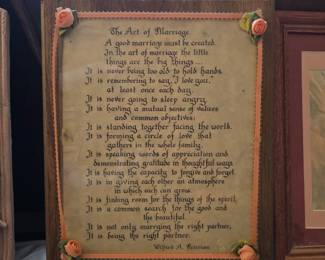 The Art of Marriage
A good marriage must be created.
In the art of marriage the little
things are the big things...
It is never being too old to hold hands.
It is remembering to say, "I love you,"
at least once each day.
It is never going to sleep angry.
It is having a mutual sense of values
and common objectives;
It is standing together facing the world.
It is forming a circle of love that
gathers in the whole family.
It is speaking words of appreciation and
demonstrating gratitude in thoughtful ways
It is having the capacity to forgive and forget.
It is in giving each other an atmosphere
in which each can grow.
It is finding room for the things of the spirit,
It is a common search for the good and
the beautiful.
It is not only marrying the right partner,
It is being the right partner.
Wilferd A. Peterson